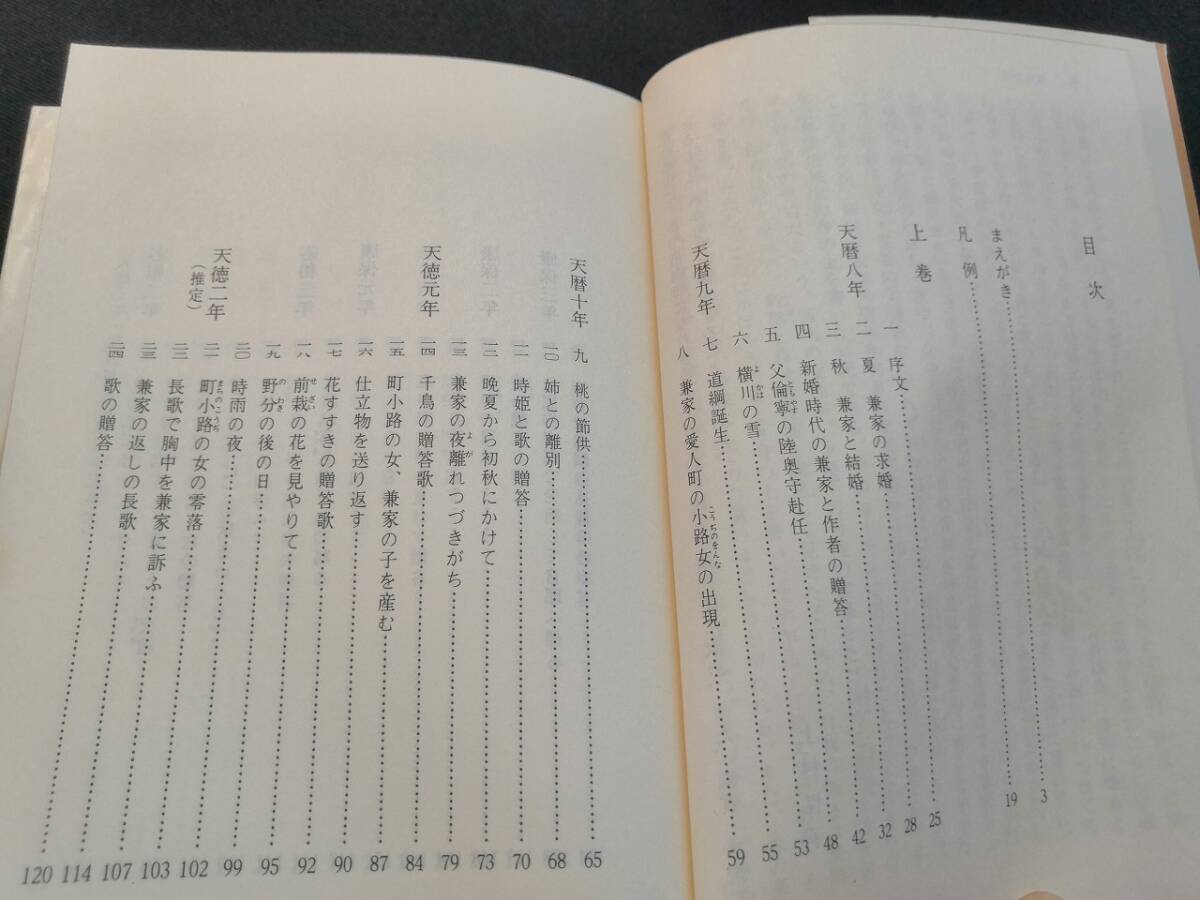 目次
まえがき……3
凡例……19
上巻
天暦八年
一 序文……25
二 夏 兼家の求婚……28
三 秋 兼家と結婚……32
四 新婚時代の兼家と作者の贈答……42
五 父倫寧の陸奥守赴任……48
六 横川の雪……53
天暦九年
七 道綱誕生……55
八 兼家の愛人町の小路女の出現……59
天暦十年
九 桃の節供……65
一〇 姉との離別……68
一一 時姫と歌の贈答……70
一二 晩夏から初秋にかけて……73
一三 兼家の夜離れつづきがち……79
天徳元年
一四 千鳥の贈答歌……84
一五 町小路の女、兼家の子を産む……87
一六 仕立物を送り返す……90
一七 花すすきの贈答歌……92
一八 前栽の花を見やりて……95
一九 野分の後の日……99
二〇 時雨の夜……102
天徳二年(推定)
二一 町小路の女の零落……103
二二 長歌で胸中を兼家に訴ふ……107
二三 兼家の返しの長歌……114
二四 歌の贈答……120